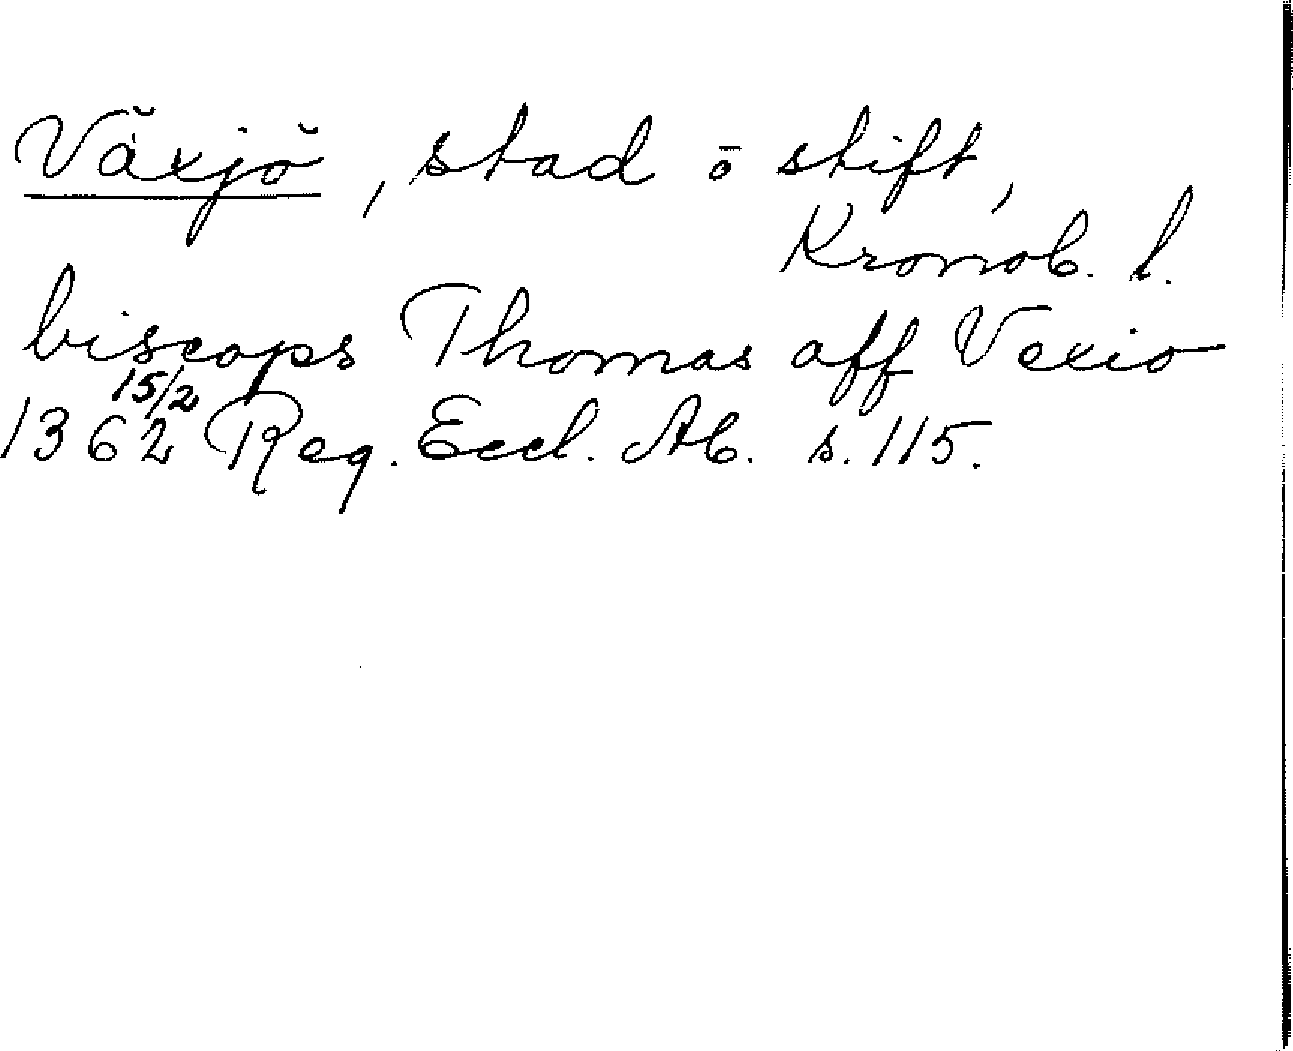 Växjö, stad ō stift,
Kronob. l.
biscops Thomas aff Vexio
15/2
1362 Reg. Eccl. Ab. s. 115.